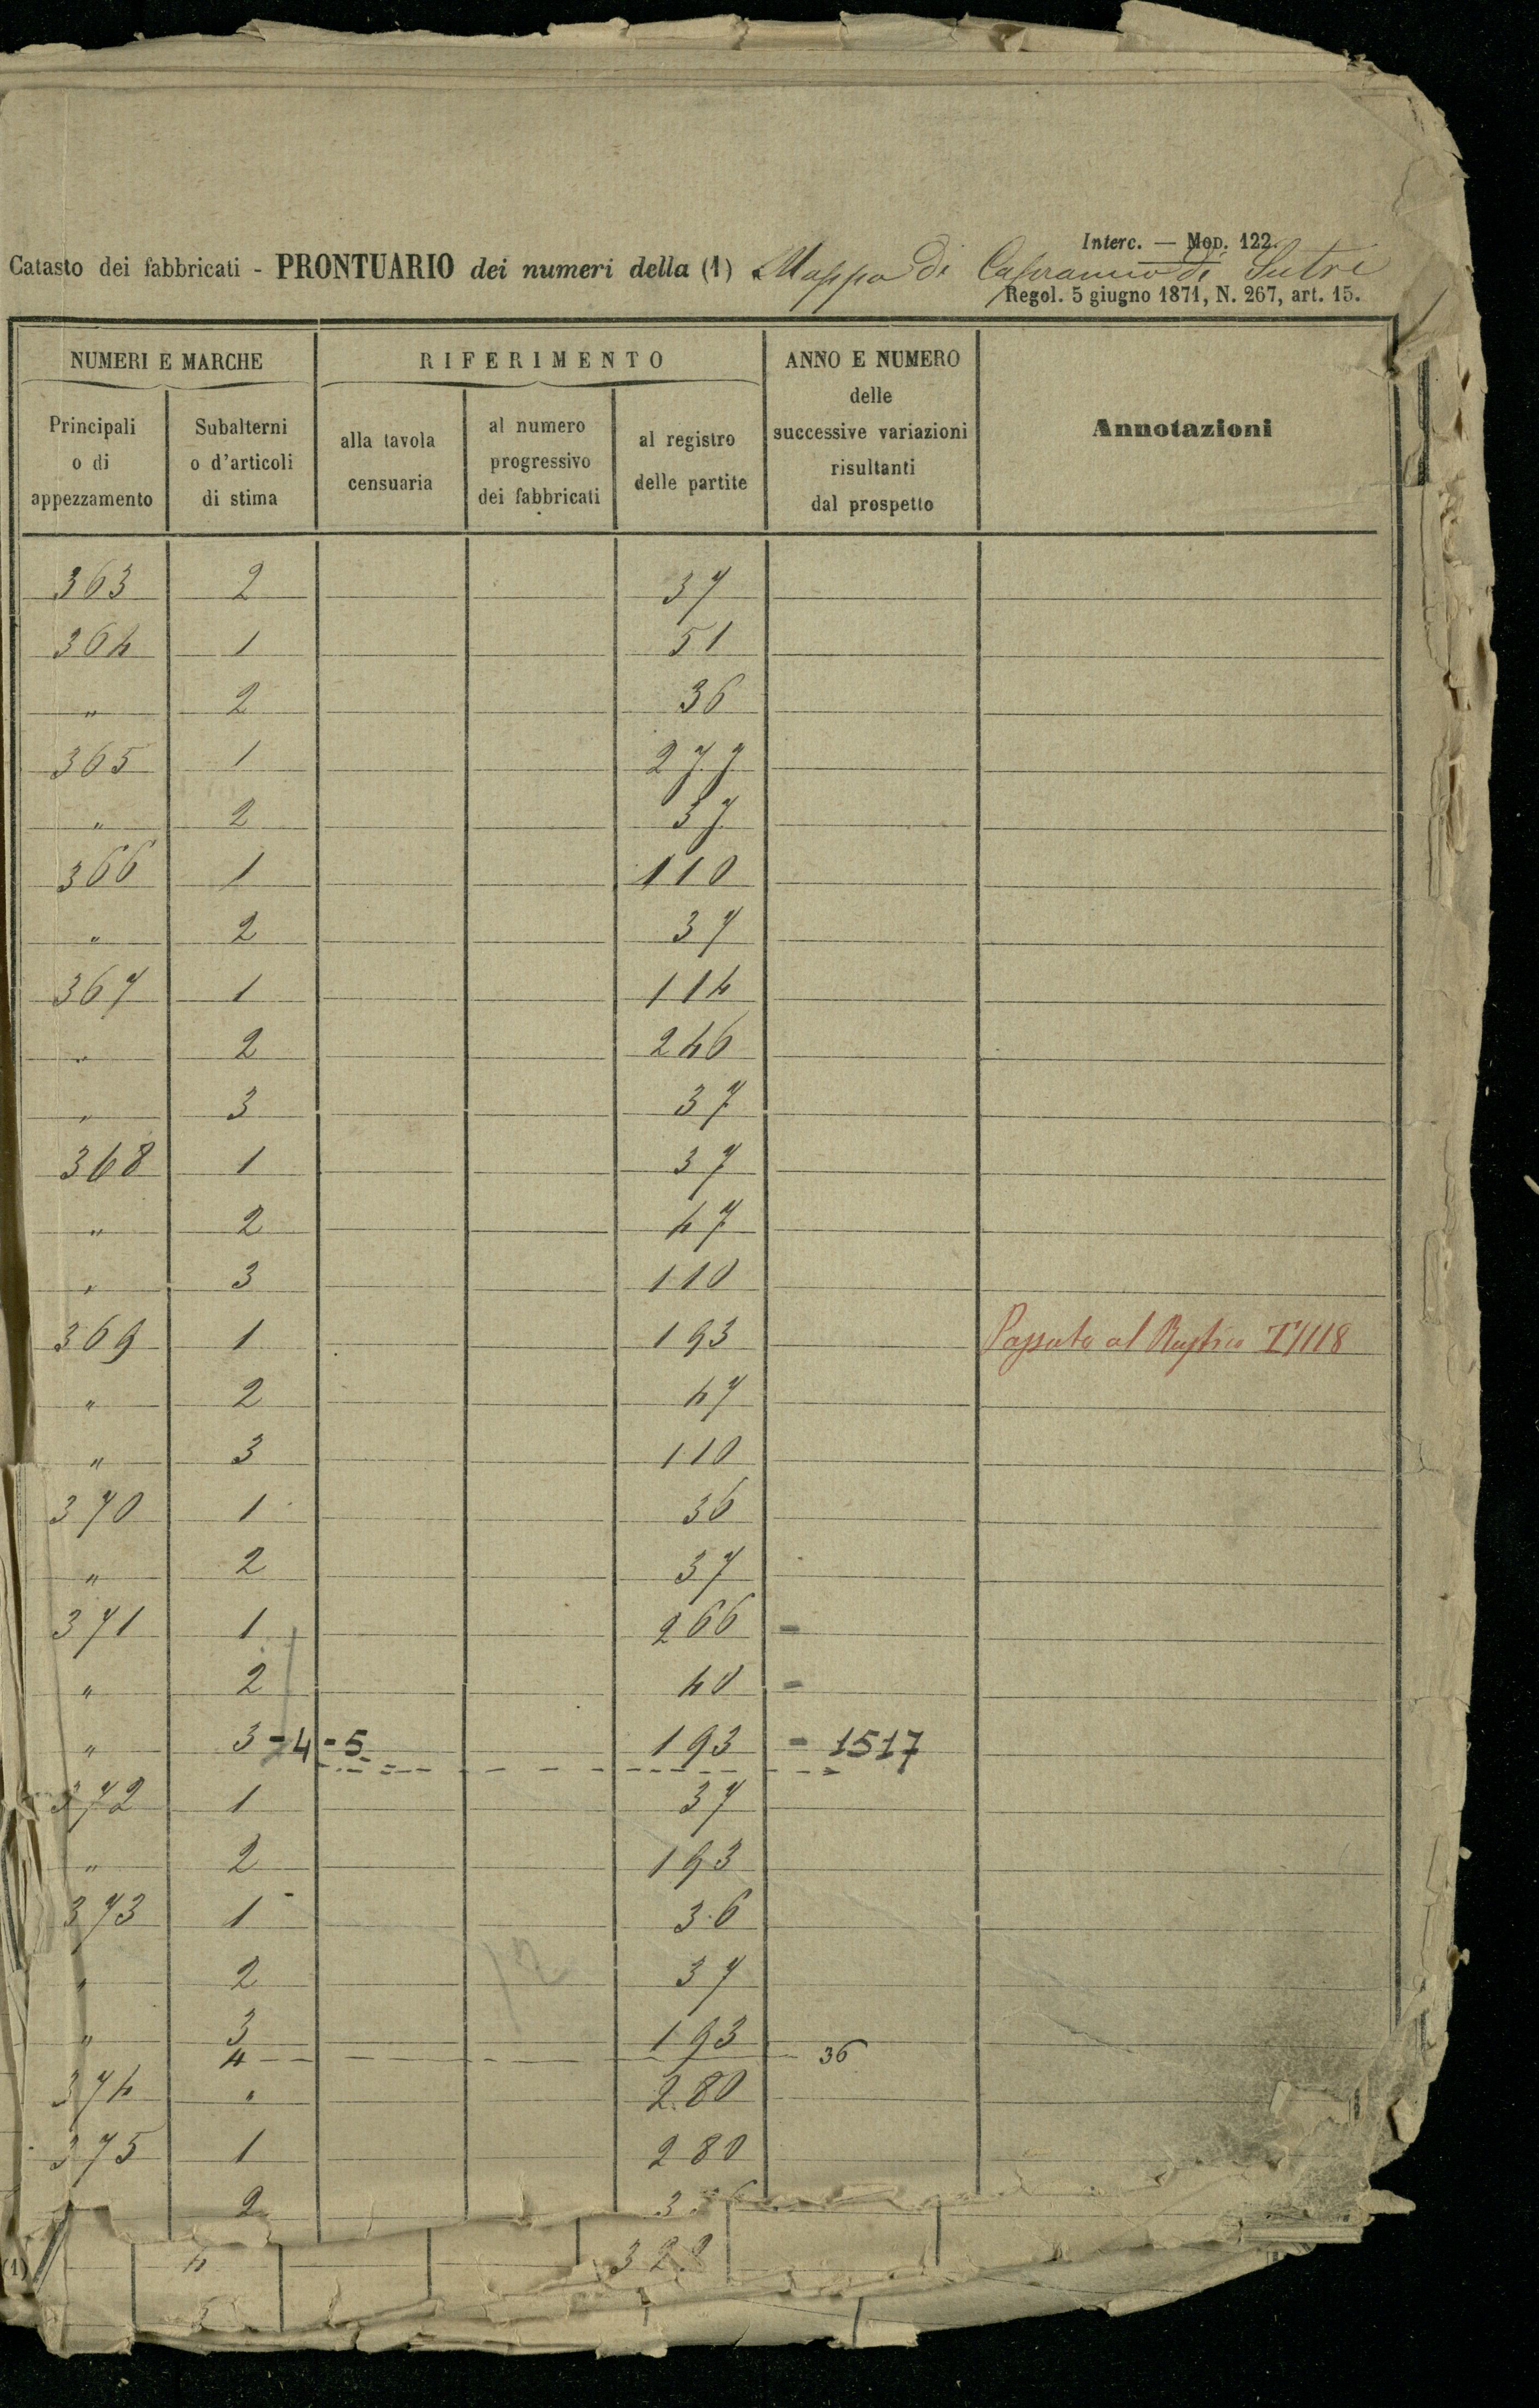 Interc. — Mod. 122.
Catasto dei fabbricati - PRONTUARIO dei numeri della (1) Mappa di Capranica di Sutri
Regol. 5 giugno 1871, N. 267, art. 15.
NUMERI E MARCHE RIFERIMENTO ANNO E NUMERO delle successive variazioni risultanti dal prospetto Annotazioni
Principali o di appezzamento Subalterni o d'articoli di stima alla tavola censuaria al numero progressivo dei fabbricati al registro delle partite
363 2 37
364 1 51
" 2 36
365 1 277
" 2 37
366 1 110
" 2 37
367 1 114
" 2 246
" 3 37
368 1 37
" 2 47
" 3 110
369 1 193 Passato al Rustico
" 2 47
" 3 110
370 1 36
" 2 37
371 1 266 -
" 2 40 -
" 3-4-5 193 - 1517
372 1 37
" 2 193
373 1 3.6
" 2 37
" 3 193
4 36
374 " 280
375 1 280
2
(1) 4